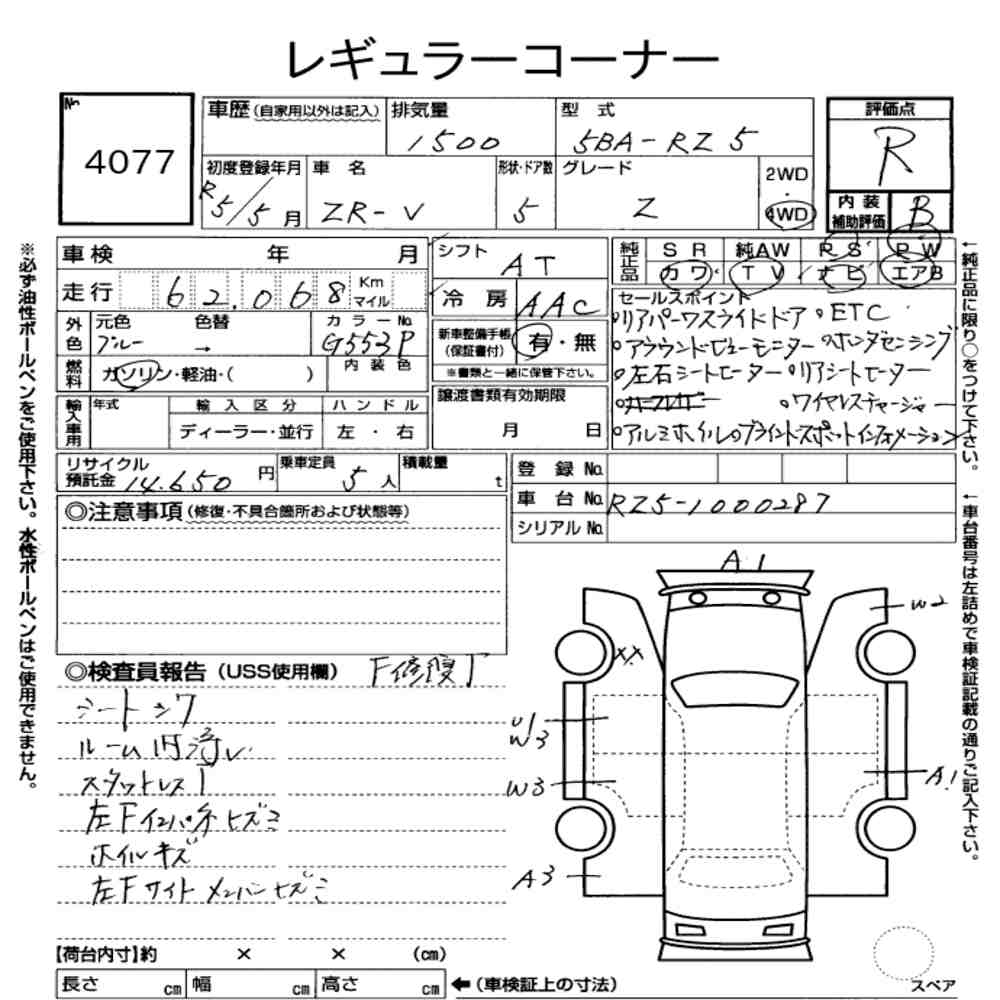 レギュラーコーナー
No.
4077
車歴(自家用以外は記入)
排気量
1500
型式
5BA-RZ5
評価点
R
初度登録年月
R5/5月
車名
ZR-V
形状・ドア数
5
グレード
Z
2WD
・
4WD
内装
補助評価
B
車検 年 月
走行 62.068 Km
マイル
シフト
AT
冷房 AAC
純正品
SR 純AW PS PW
カワ TV ナビ エアB
外色
元色 色替
ブルー →
カラーNo.
G553P
燃料
ガソリン・軽油・( )
内装色
新車整備手帳
(保証書付)
有・無
※書類と一緒に保管下さい。
セールスポイント
○リアパワースライドドア ○ETC
○アラウンドビューモニター ○ホンダセンシング
○左右シートヒーター ○リアシートヒーター
○ワイヤレスチャージャー
○アルミホイル○ブラインドスポットインフォメーション
輸入車用
年式
輸入区分
ディーラー・並行
ハンドル
左・右
譲渡書類有効期限
月 日
リサイクル
預託金 14.650円
乗車定員
5人
積載量
t
登録No.
車台No. RZ5-1000287
シリアルNo.
◎注意事項(修復・不具合箇所および状態等)
◎検査員報告(USS使用欄) F修復T
シートシワ
ルーム内汚レ
スタットレスT
左Fインパネヒズミ
ホイルキズ
左Fサイドメンバーヒズミ
A1
W2
XX
U1
W3
W3
A1
A3
【荷台内寸】約 × × (cm)
長さ cm 幅 cm 高さ cm
←(車検証上の寸法)
スペア
※必ず油性ボールペンをご使用下さい。水性ボールペンはご使用できません。
←純正品に限り○をつけて下さい。
←車台番号は左詰めで車検証記載の通りご記入下さい。